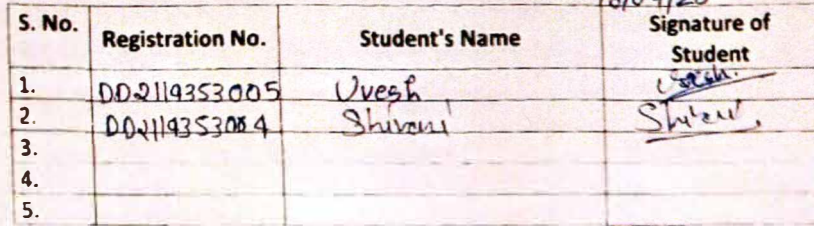 S. No. Registration No. Student's Name Signature of Student
1. DD2119353005 Uvesh Uvesh.
2. DD2119353004 Shivani Shivani.
3.
4.
5.